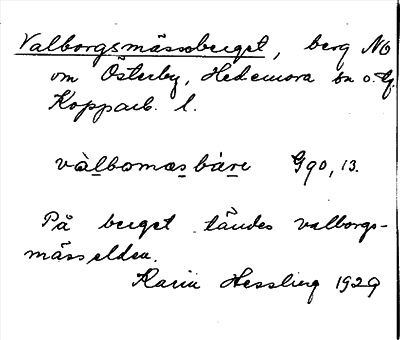 Valborgsmässoberget, berg NO
om Österby, Hedemora sn o. tg.
Kopparb. l.
vàlbomæsbære G90, 13.
På berget tändes valborgs-
mässelden.
Karin Hessling 1929